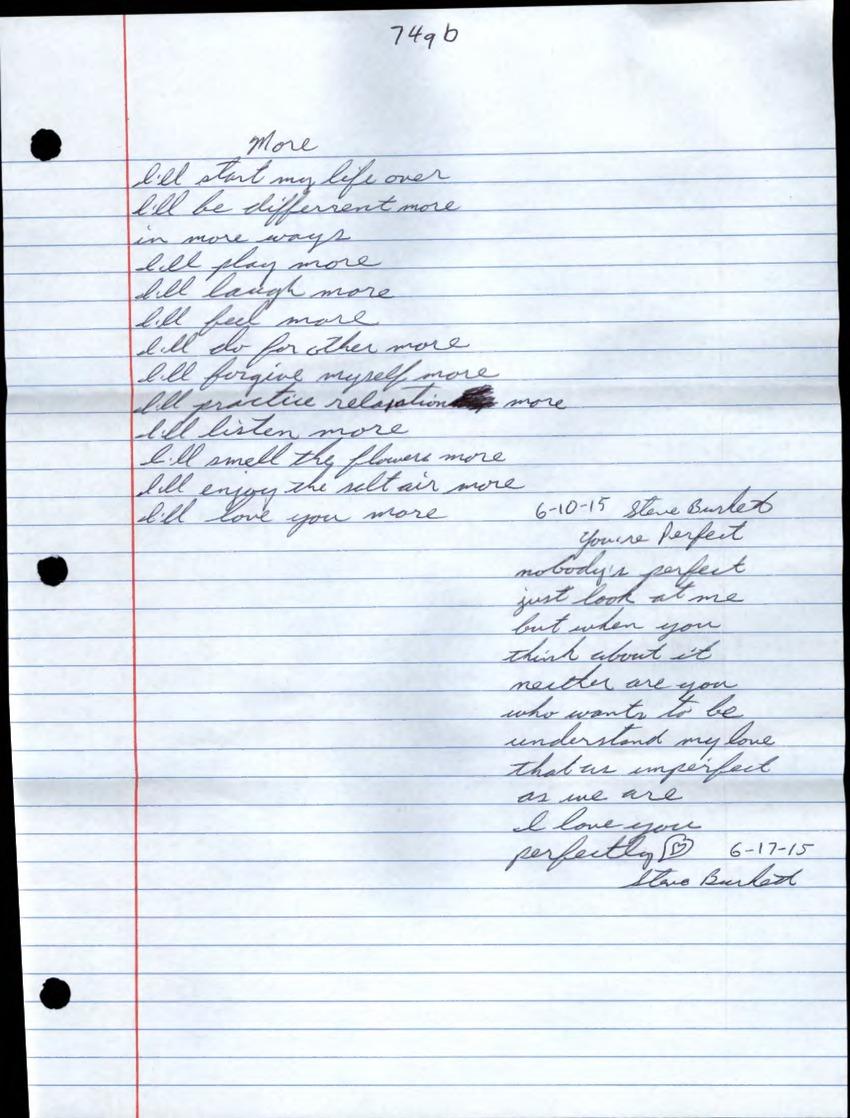 749b
More
I'll start my life over
I'll be differrent more
in more ways
I'll play more
I'll laugh more
I'll feel more
I'll do for other more
I'll forgive myself more
I'll practice relaxation more
I'll listen more
I'll smell the flowers more
I'll enjoy the salt air more
I'll love you more
6-10-15 Steve Burket
You're Perfect
nobody's perfect
just look at me
but when you
think about it
neither are you
who wants to be
understand my love
that as imperfect
as we are
I love you
perfectly 6-17-15
Steve Burket